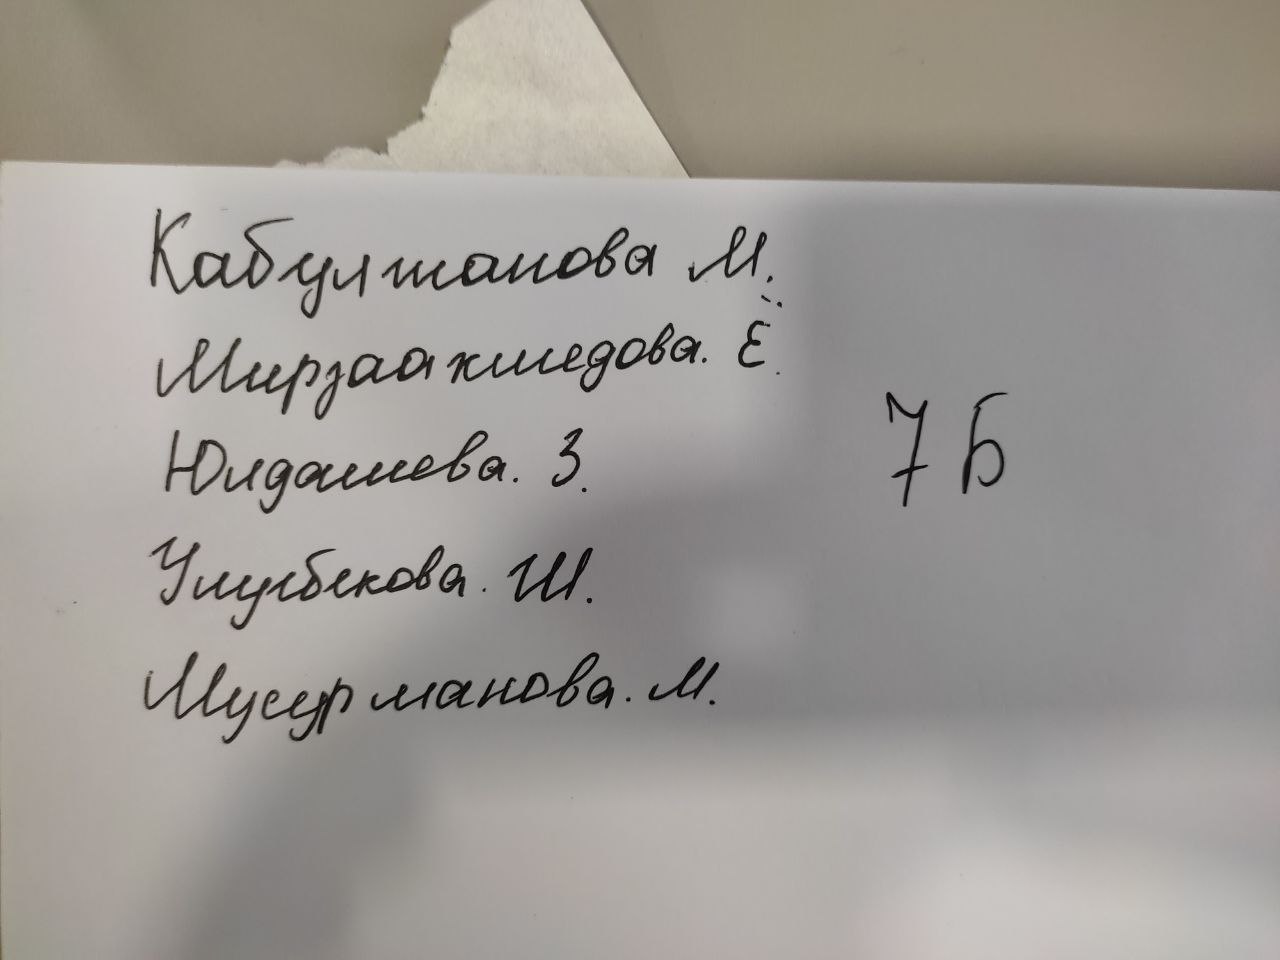 Кабулжанова М.
Мирзаахмедова. Ё.
Юлдашева. З.
7 Б
Улугбекова. Ш.
Мусурманова. М.